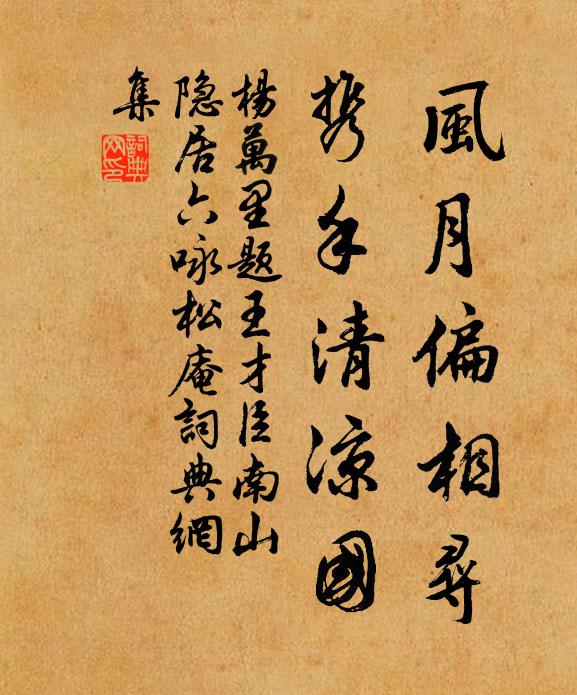 風月偏相尋
携手清涼國
楊萬里題王才臣南山
隐居六咏松庵詞典網
集
詞典网印